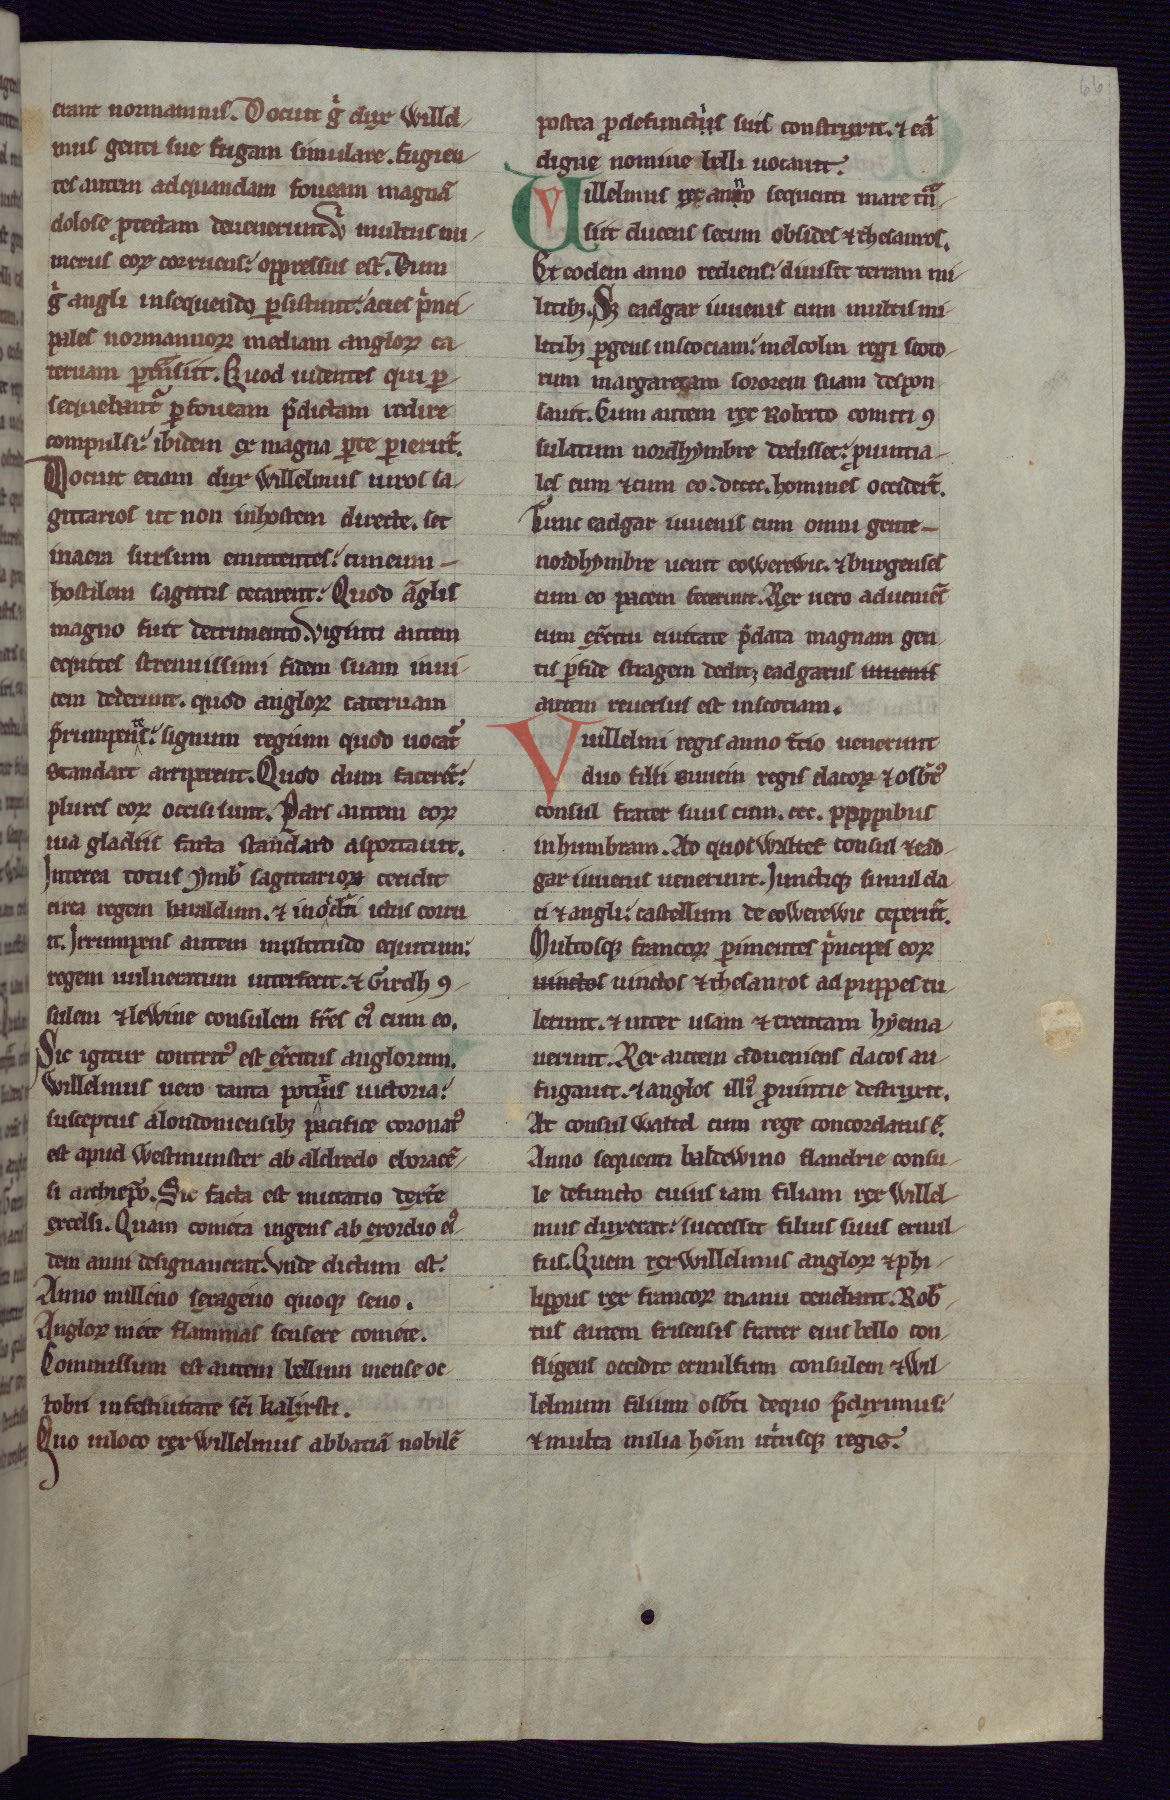 66
erant normannis. Docuit g̾ dux Willel-
mus genti sue fugam simulare. fugien-
tes autem ad quandam foueam magnā
dolose ꝓtectam deuenerunt. ubi multus nu-
merus eoꝝ corruens; oppressus est. Dum
g̾ angli insequendo ꝑsistunt; acies p̾nci-
pales normannoꝝ mediam angloꝝ ca-
teruam ꝑtransiit. Quod uidentes qui ꝑ-
sequebant᷑ ꝑ foueam p̄dictam redire
compulsi; ibidem ex magna ꝑte ꝑierūt.
Docuit etiam dux Willelmus uiros sa-
gittarios ut non in hostem directe. set
in aera sursum emittentes; cuneum
hostilem sagittis cecarent; Quod āglis
magno fuit detrimento. Viginti autem
equites strenuissimi fidem suam inui-
cem dederunt. quod angloꝝ cateruam
p̄rumpentes; signum regium quod uocat᷑
standart arriperent. Quod dum facerēt;
plures eoꝝ occisi sunt. Pars autem eoꝝ
uia gladiis facta standard asportauit.
Interea totus ymb̄ sagittarioꝝ cecidit
circa regem haraldum. & in oc̄lu ictus corru
it. Irrumpens autem multitudo equitum;
regem uulneratum interfecit. & Girdh ꝯ-
sulem & leWine consulem fr̄es ei᷒ cum eo.
Sic igitur contrit᷒ est ex̄citus anglorum.
Willelmus uero tanta potitus uictoria;
susceptus a londoniensibꝫ pacifice coronat᷒
est apud Westmunster ab aldredo eboracē-
si archiepō. Sic facta est mutatio dextre
excelsi. Quam cometa ingens ab exordio ei᷒-
dem anni designauerat. Vnde dictum est.
Anno milleno sexageno quoqꝫ seno.
Angloꝝ mete flammas sensere comete.
Commissum est autem bellum mense oc
tobri in festiuitate sc̄i kalixti.
Quo in loco rex Willelmus abbatiā nobilē
postea ꝓ defunctis suis construxit. & eā
digne nomine belli uocauit.
Villelmus rex anno sequenti mare trā-
siit ducens secum obsides & thesauros.
Et eodem anno rediens; diuisit terram mi
litibꝫ. Sꝫ eadgar iuuenis cum multis mi-
litibꝫ ꝑgens in scociam; melcolm regi scoto-
rum margaretam sororem suam despon
sauit. Cum autem rex Roberto comiti ꝯ
sulatum nordhymbre dedisset; ꝓuintia-
les eum & cum eo. dcccc. homines occiderūt.
Tunc eadgar iuuenis cum omni gente
nordhymbre uenit eoWerewic. & burgenses
cum eo pacem fecerunt. Rex uero adueniēs
cum ex̄citu ciuitate p̄data magnam gen-
tis ꝑfide stragem dedit; eadgarus iuuenis
autem reuersus est in scotiam.
Vuillelmi regis anno t̄cio uenerunt
duo filii suuein regis dacoꝝ & osb̄t᷒
consul frater suus cum. ccc. puppibus
in humbram. Ad quos Waltef consul & ead-
gar iuuenis uenerunt. Junctiqꝫ simul da
ci & angli; castellum de eoWerewic ceperūt.
Multosqꝫ francoꝝ ꝑimentes p̾ncipes eoꝝ
uinctos uinctos & thesauros ad puppes tu-
lerunt. & inter usam & trentam hyema
uerunt. Rex autem adueniens dacos au-
fugauit. & anglos illi᷒ ꝓuintie destruxit.
At consul Waltef cum rege concordatus ē.
Anno sequenti baldewino flandrie consu-
le defuncto cuius iam filiam rex Willel-
mus duxerat; successit filius suus ernul-
fus. Quem rex Willelmus angloꝝ & phi-
lippus rex francoꝝ manu tenebant. Rob̄-
tus autem frisensis frater eius bello con-
fligens occidit ernulfum consulem & Wil-
lelmum filium osb̄ti de quo p̄diximus;
& multa milia hoīm ut̾usqꝫ regis.